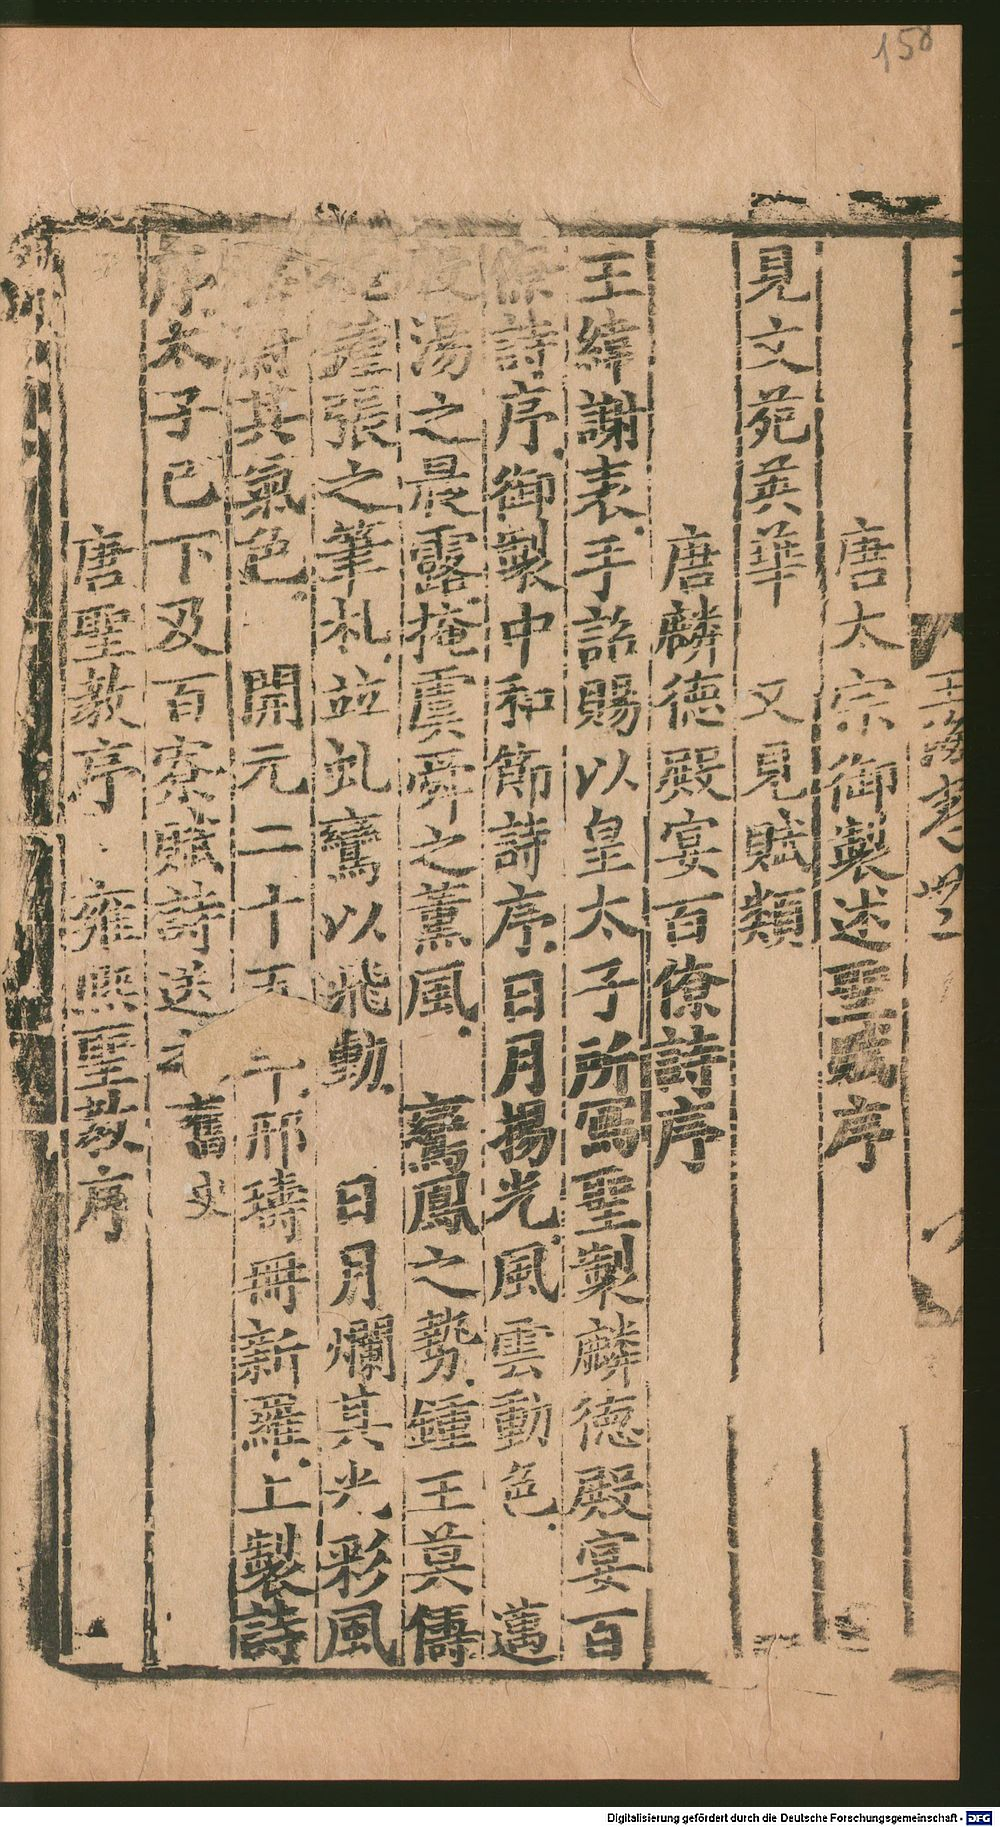 158
唐太宗御製述聖賦序
見文苑英華 又見賦類
唐麟德殿宴百僚詩序
王緯謝表手詔賜以皇太子所寫聖製麟德殿宴百
僚詩序御製中和節詩序日月揚光風雲動色 邁
殷湯之晨露掩虞舜之薰風 鸞鳳之勢鍾王莫儔
張之筆札並虬鸞以飛動 日月爛其光彩風
其氣色 開元二十五年邢璹冊新羅上製詩
序太子已下及百寮賦詩送 舊史
唐聖教序 雍熙聖教序
Digitalisierung gefördert durch die Deutsche Forschungsgemeinschaft - DFG